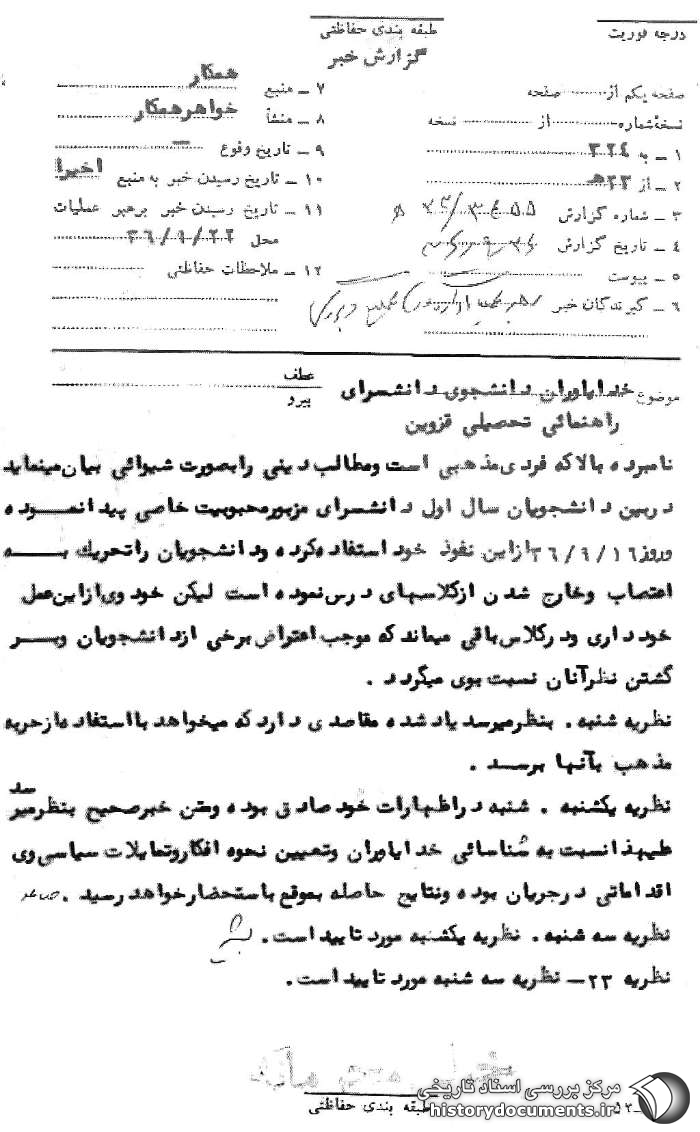 درجه فوریت
طبقه بندی حفاظتی
گزارش خبر
صفحه یکم از ........ صفحه
نسخهٔ شماره ........ از ........ نسخه
۱ ـ به ۳۲۴
۲ ـ از ۲۳ هـ
۳ ـ شماره گزارش
۴ ـ تاریخ گزارش
۵ ـ پیوست
۶ ـ گیرندگان خبر
۷ ـ منبع همکار
۸ ـ منشأ خواهر همکار
۹ ـ تاریخ وقوع ـ
۱۰ ـ تاریخ رسیدن خبر به منبع اخیرا
۱۱ ـ تاریخ رسیدن خبر برهبر عملیات
محل ۳۶/۹/۲۲
۱۲ ـ ملاحظات حفاظتی
موضوع خدایاوران دانشجوی دانشسرای
راهنمائی تحصیلی قزوین
عطف
پیرو
نامبرده بالا که فردی مذهبی است ومطالب دینی را بصورت شیوائی بیان مینماید
دربین دانشجویان سال اول دانشسرای مزبور محبوبیت خاصی پیدا نمـــوده
وروز ۳۶/۹/۱۶ ازاین نفوذ خود استفاده کرده ودانشجویان را تحریک بـــه
اعتصاب وخارج شدن ازکلاسهای درس نموده است لیکن خود وی ازاین عمل
خود داری ودرکلاس باقی میماند که موجب اعتراض برخی ازدانشجویان وبـــر
گشتن نظرآنان نسبت بوی میگردد .
نظریه شنبه . بنظرمیرسد یاد شده مقاصدی دارد که میخواهد با استفاده از حربه
مذهب بآنها برســد .
نظریه یکشنبه . شنبه دراظهارات خود صادق بوده ومتن خبرصحیح بنظرمیر سد
علیهذا نسبت به شناسائی خدایاوران وتعیین نحوه افکاروتمایلات سیاسی وی
اقداماتی درجریان بوده ونتایج حاصله بموقع باستحضار خواهد رسید .
نظریه سه شنبه . نظریه یکشنبه مورد تایید است .
نظریه ۲۳ ـ نظریه سه شنبه مورد تایید است .
طبقه بندی حفاظتی
مرکز بررسی اسناد تاریخی
historydocuments.ir